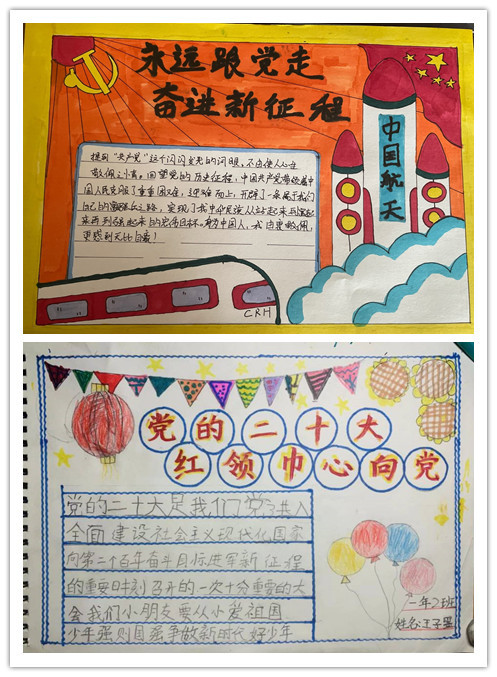 永远跟党走
奋进新征程
中国航天
提到“共产党”这个闪闪发光的词眼，不由使人心生
敬佩之情。回望党的历史征程，中国共产党带领着中
国人民克服了重重困难，迎难而上，开辟了一条属于我们
自己的
路，实现了我中华民族从站起来到富起
来再到强起来的宏伟目标。身为中国人，我由衷
更感到无比自豪！
CRH
党的二十大
红领巾心向党
党的二十大是我们党
进入
全面建设社会主义现代化国家
向第二个百年奋斗目标进军新征程
的重要时刻召开的一次十分重要的大
会我们小朋友要从小爱祖国
少年强则国强争做新时代好少年
一年2班
姓名:王子